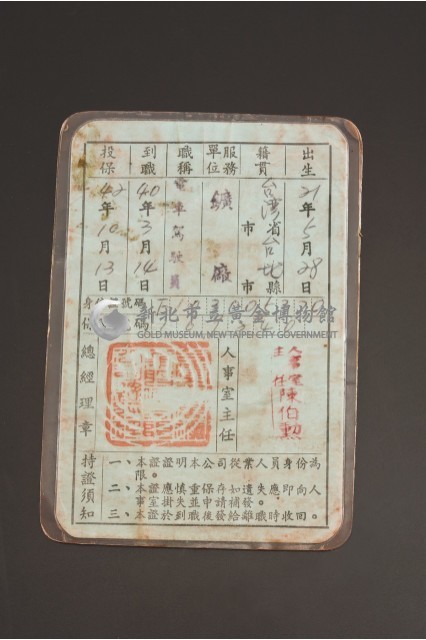 出生 21年5月28日
籍貫 台灣省台北縣
市 市
服務單位 鑛廠
職稱 電車駕駛員
到職 40年3月14日
投保 42年10月13日
號碼
新北市立黃金博物館
GOLD MUSEUM, NEW TAIPEI CITY GOVERNMENT
人事室主任
主任陳伯勳
總經理章
持證須知
一、本證證明本公司從業人員身份為
限。
二、本證應慎重保存如遺失應即向人
事室掛失並申請補發。
三、本證於到職後發給離職時收回。